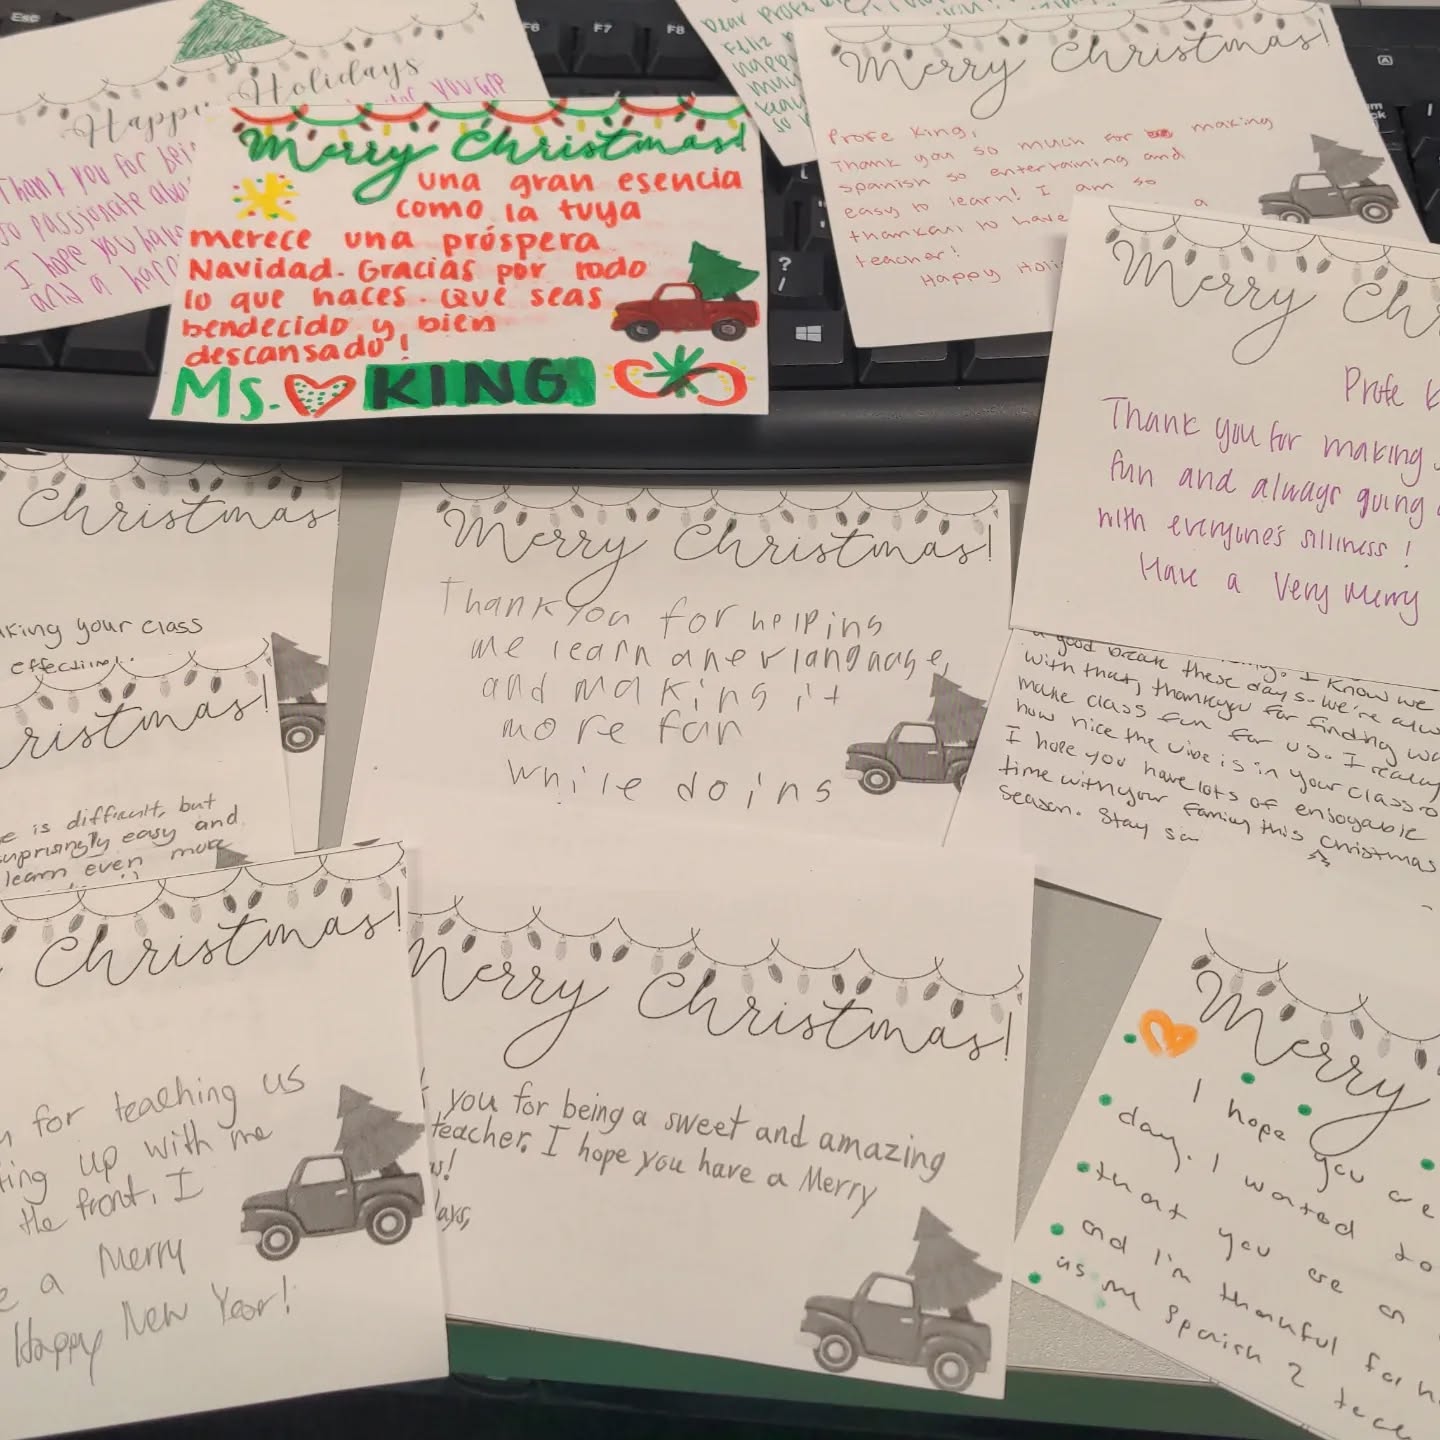 Esc
F6
F7
F8
Happy Holidays
Thank you for bei
so passionate abou
I hope you have
and a happ
you are
Merry Christmas!
una gran esencia
como la tuya
merece una próspera
Navidad. Gracias por todo
lo que haces. Qué seas
bendecido y bien
descansado!
Ms. KING
Dear Profe
Feliz
Happy
Merry Christmas!
Profe King,
Thank you so much for making
spanish so entertaining and
easy to learn! I am so
thankful to have a
teacher!
Happy Holi
?
/
Merry Ch
Profe K
Thank you for making
fun and always going
with everyone's silliness!
Have a Very Merry
Christmas
king your class
effective!
ristmas!
e is difficult, but
surprisingly easy and
learn even more
Merry Christmas!
Thank you for helping
me learn a new language,
and making it
more fun
while doing
a good break these days. we're alw
with that, thankyou for finding wa
make class fun for us. I really
how nice the vibe is in your classro
I hope you have lots of enjoyable
time with your family this Christmas
season. Stay sa
Christmas!
for teaching us
ting up with me
the front, I
e a Merry
Happy New Year!
Merry Christmas!
you for being a sweet and amazing
teacher. I hope you have a Merry
s!
days,
Merry
I hope you are
day. I wanted to
that you are an
and I'm thankful for
as my Spanish 2 teac